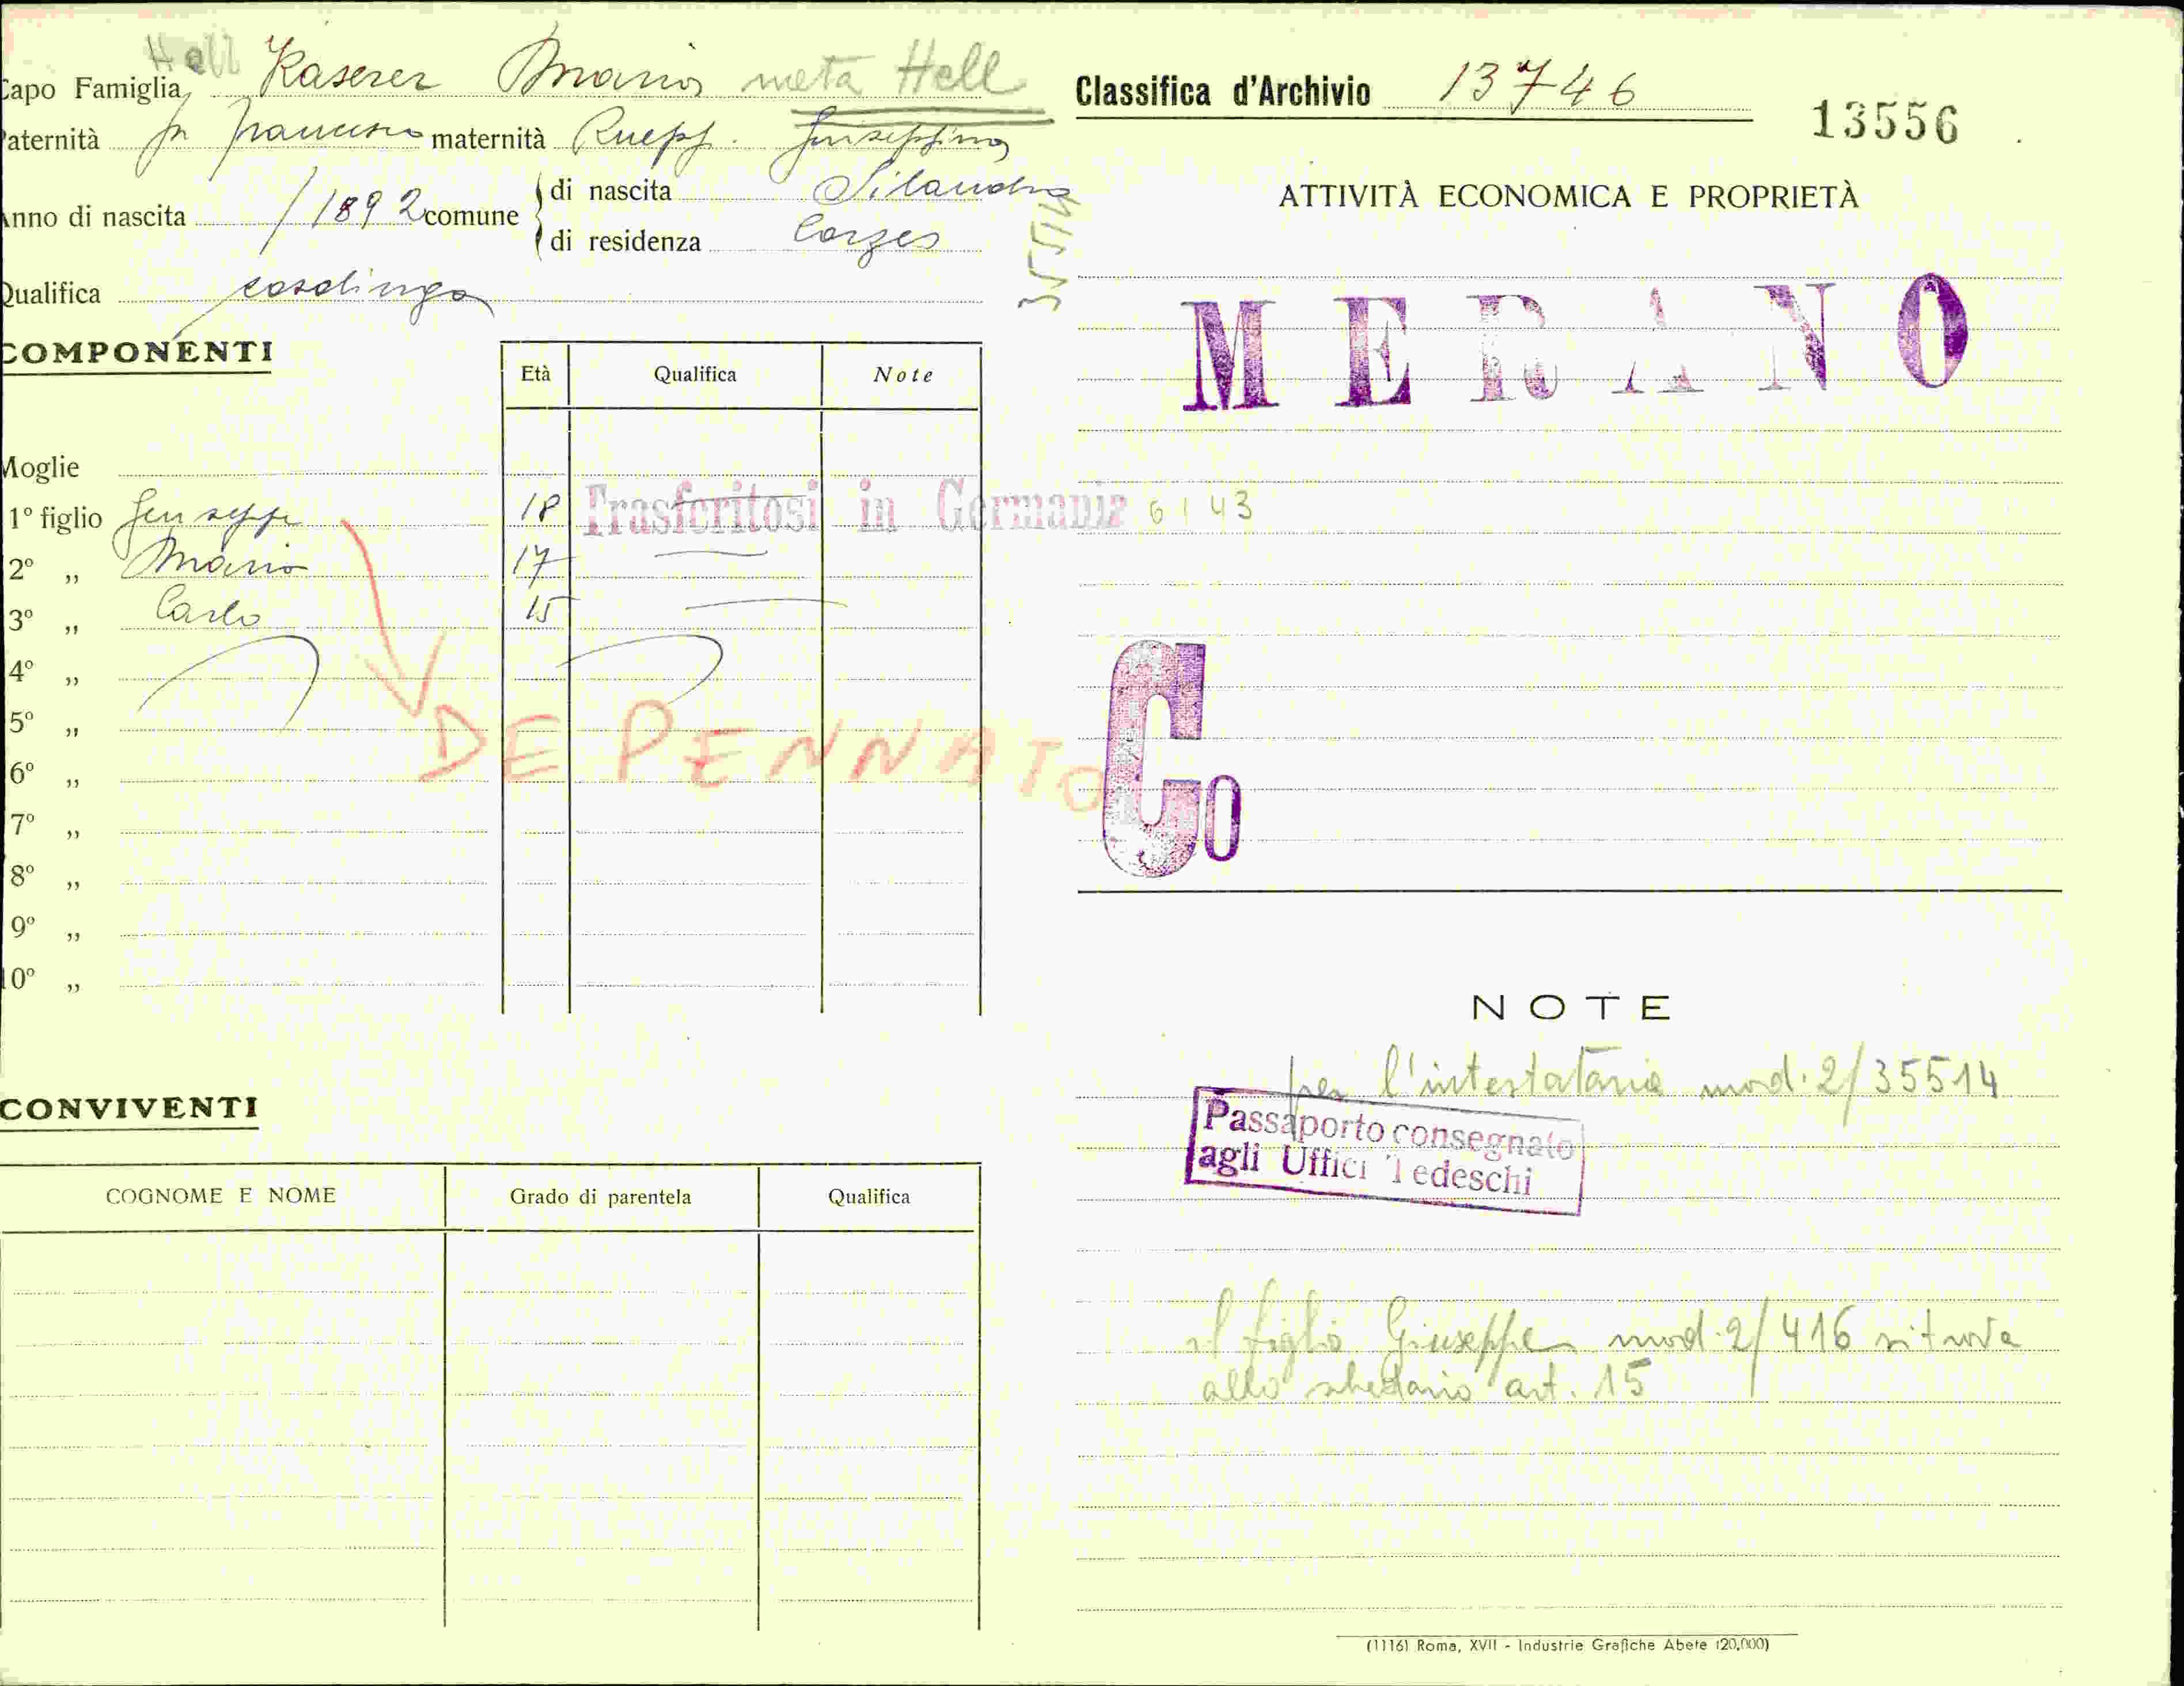 Hell
Capo Famiglia Kaserer Maria metà Hell
Paternità fu Francesco maternità Ruepp Giuseppina
Anno di nascita /1892 comune di nascita Silandro
di residenza Corzes
Qualifica casalinga
COMPONENTI
Età Qualifica Note
Moglie
1º figlio Giuseppe 18 Trasferitosi in Germania 6143
2º „ Maria 17
3º „ Carlo 15
4º „
5º „
DEPENNATO
6º „
7º „
8º „
9º „
10º „
CONVIVENTI
COGNOME E NOME Grado di parentela Qualifica
Classifica d'Archivio 13746
13556
ATTIVITÀ ECONOMICA E PROPRIETÀ
MERANO
Co
NOTE
per l'intestataria mod. 2/35514
Passaporto consegnato
agli Uffici Tedeschi
il figlio Giuseppe mod. 2/416 si trova
allo schedario art. 15
(1116) Roma, XVII - Industrie Grafiche Abete (20.000)